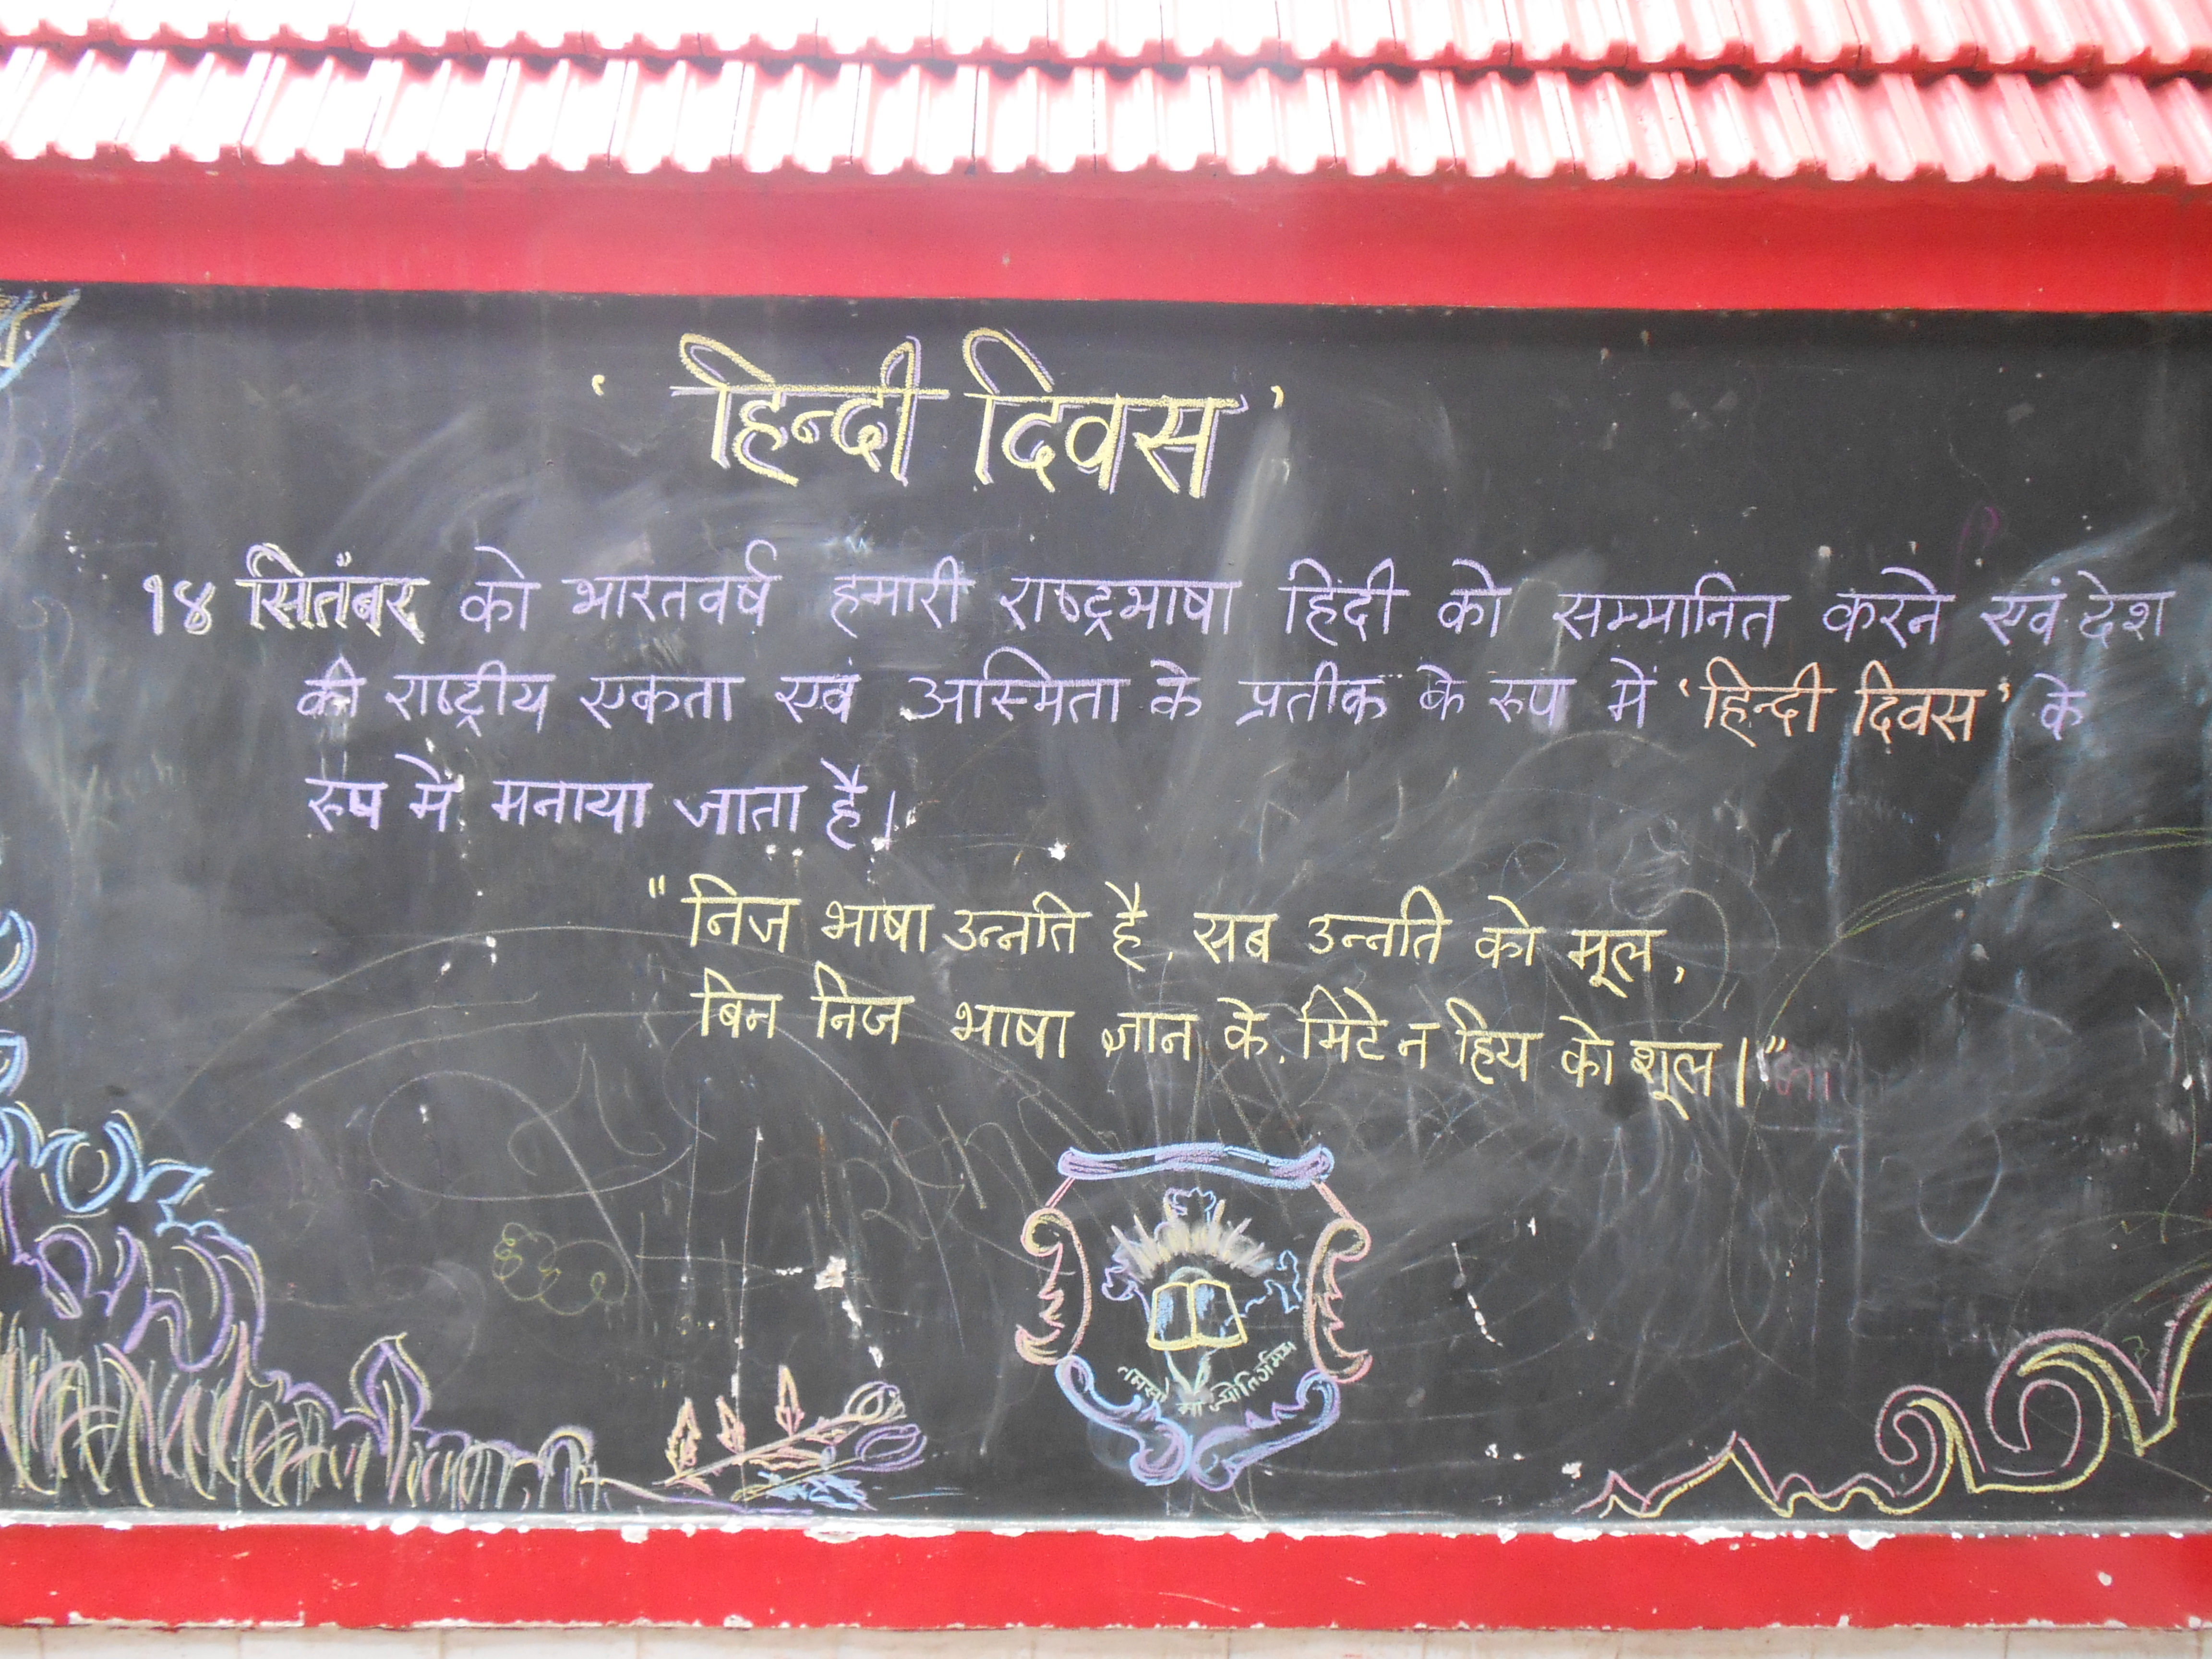 ' हिन्दी दिवस '
१४ सितंबर को भारतवर्ष हमारी राष्ट्रभाषा हिंदी को सम्मानित करने एवं देश
की राष्ट्रीय एकता एवं अस्मिता के प्रतीक के रुप में 'हिन्दी दिवस' के
रुप में मनाया जाता है।
" निज भाषा उन्नति है, सब उन्नति को मूल,
बिन निज भाषा ज्ञान के, मिटे न हिय को शूल।"
मा ज्योतिर्गमय